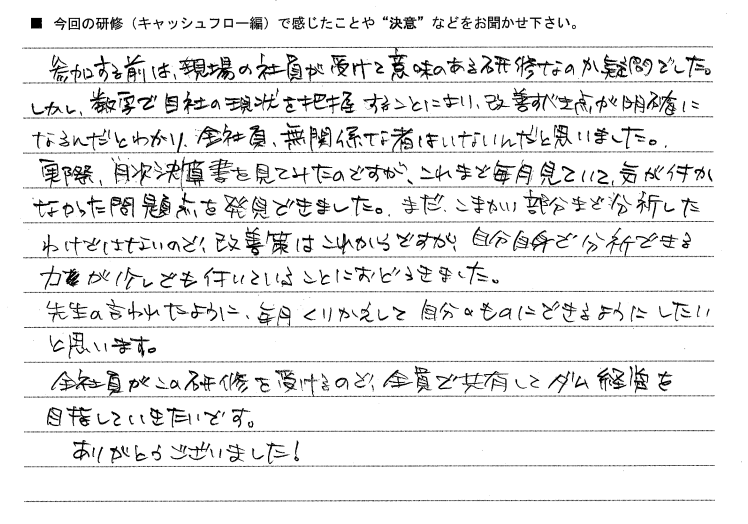 ■ 今回の研修（キャッシュフロー編）で感じたことや“決意”などをお聞かせ下さい。
参加する前は、現場の社員が受けて意味のある研修なのか疑問でした。
しかし、数字で自社の現状を把握することにより、改善すべき点が明確に
なるんだとわかり、全社員、無関係な者はいないんだと思いました。
実際、月次決算書を見てみたのですが、これまで毎月見ていて、気が付か
なかった問題点を発見できました。まだ、こまかい部分まで分析した
わけではないので、改善策はこれからですが、自分自身で分析できる
力が少しでも付いていることにおどろきました。
先生の言われたように、毎月くりかえして自分のものにできるようにしたい
と思います。
全社員がこの研修を受けるので、全員で共有してダム経営を
目指していきたいです。
ありがとうございました！